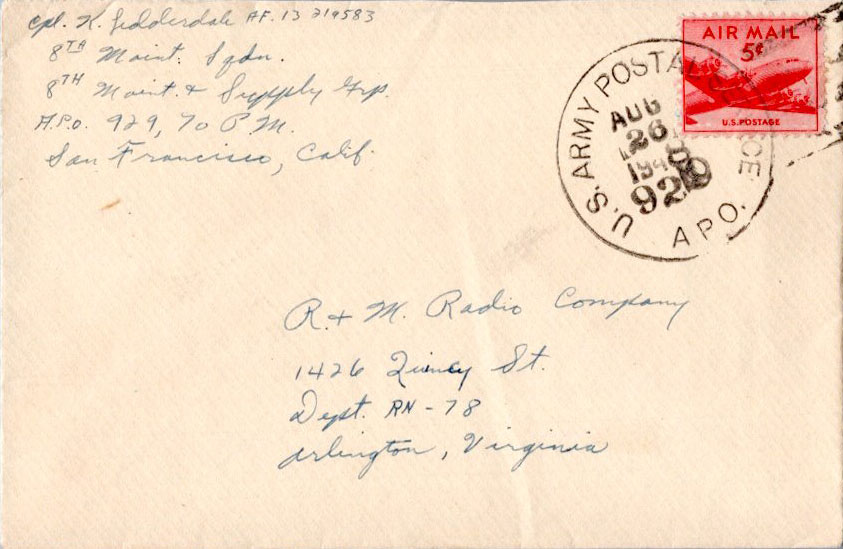 Cpl. K. Lidderdale AF. 13 219583
8TH Maint. Sqdn.
8TH Maint. & Supply Grp.
A.P.O. 929, % P.M.
San Francisco, Calif.
AIR MAIL
5¢
U.S. POSTAGE
U.S. ARMY POSTAL SERVICE
AUG
26
194
929
A P O.
R. & M. Radio Company
1426 Quincy St.
Dept. RN - 78
Arlington, Virginia